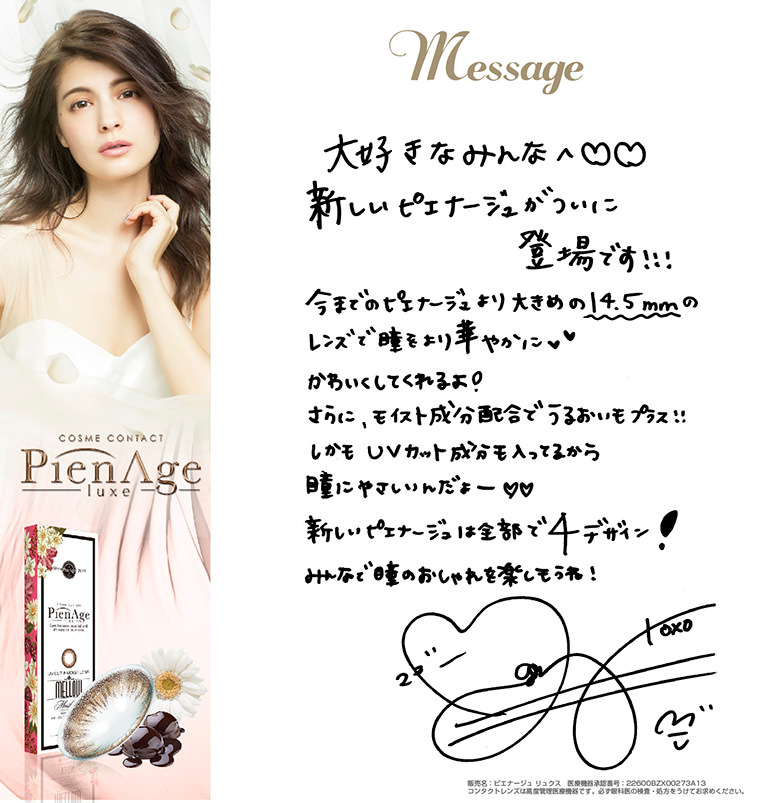 Message
大好きなみんなへ♡♡
新しいピエナージュがついに
登場です!!!
今までのピエナージュより大きめの14.5mmの
レンズで瞳をより華やかに♥♥
かわいくしてくれるよ!
さらに、モイスト成分配合でうるおいもプラス!!
しかもUVカット成分も入ってるから
瞳にやさしいんだよー♡♡
新しいピエナージュは全部で4デザイン!
みんなで瞳のおしゃれを楽しもうね!
xoxo
COSME CONTACT
PienAge
luxe
PienAge
MELLOW
販売名:ピエナージュ リュクス 医療機器承認番号:22600BZX00273A13
コンタクトレンズは高度管理医療機器です。必ず眼科医の検査・処方をうけてお求めください。